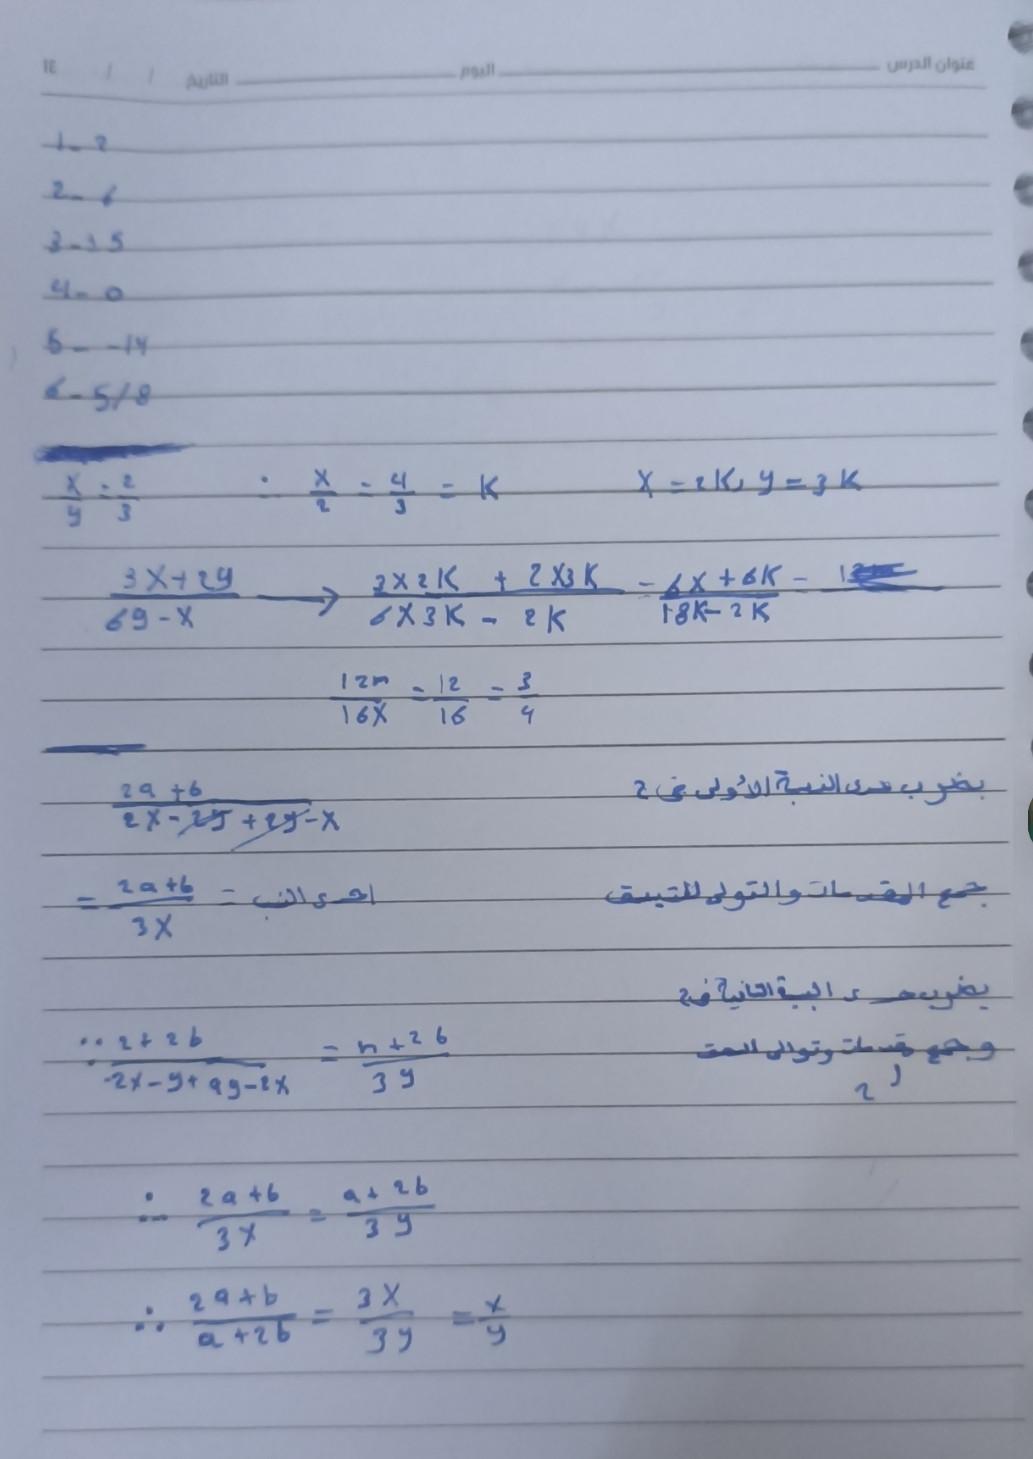 عنوان الدرس اليوم التاريخ / / ١٤
1- 2
2- 6
3- 15
4- 0
5- -14
6- 5/8
x/y = 2/3 ∴ x/2 = y/3 = K X = 2K, y = 3K
3X+2y / 6y-X → 3×2K + 2×3K / 6×3K - 2K = 6X+6K / 18K-2K =
12n / 16X = 12/16 = 3/4
2a+b / 2X-2y+2y-X بضرب حدى النسبة الأولى فى 2
= 2a+b / 3X = احدى النسب جمع المقدمات والتوالى
بضرب حدى النسبة الثانية فى 2
∵ 2+2b / 2X-y+4y-2X = n+2b / 3y وجمع مقدمات وتوالى
2
∴ 2a+b / 3X = a+2b / 3y
∴ 2a+b / a+2b = 3X / 3y = x/y